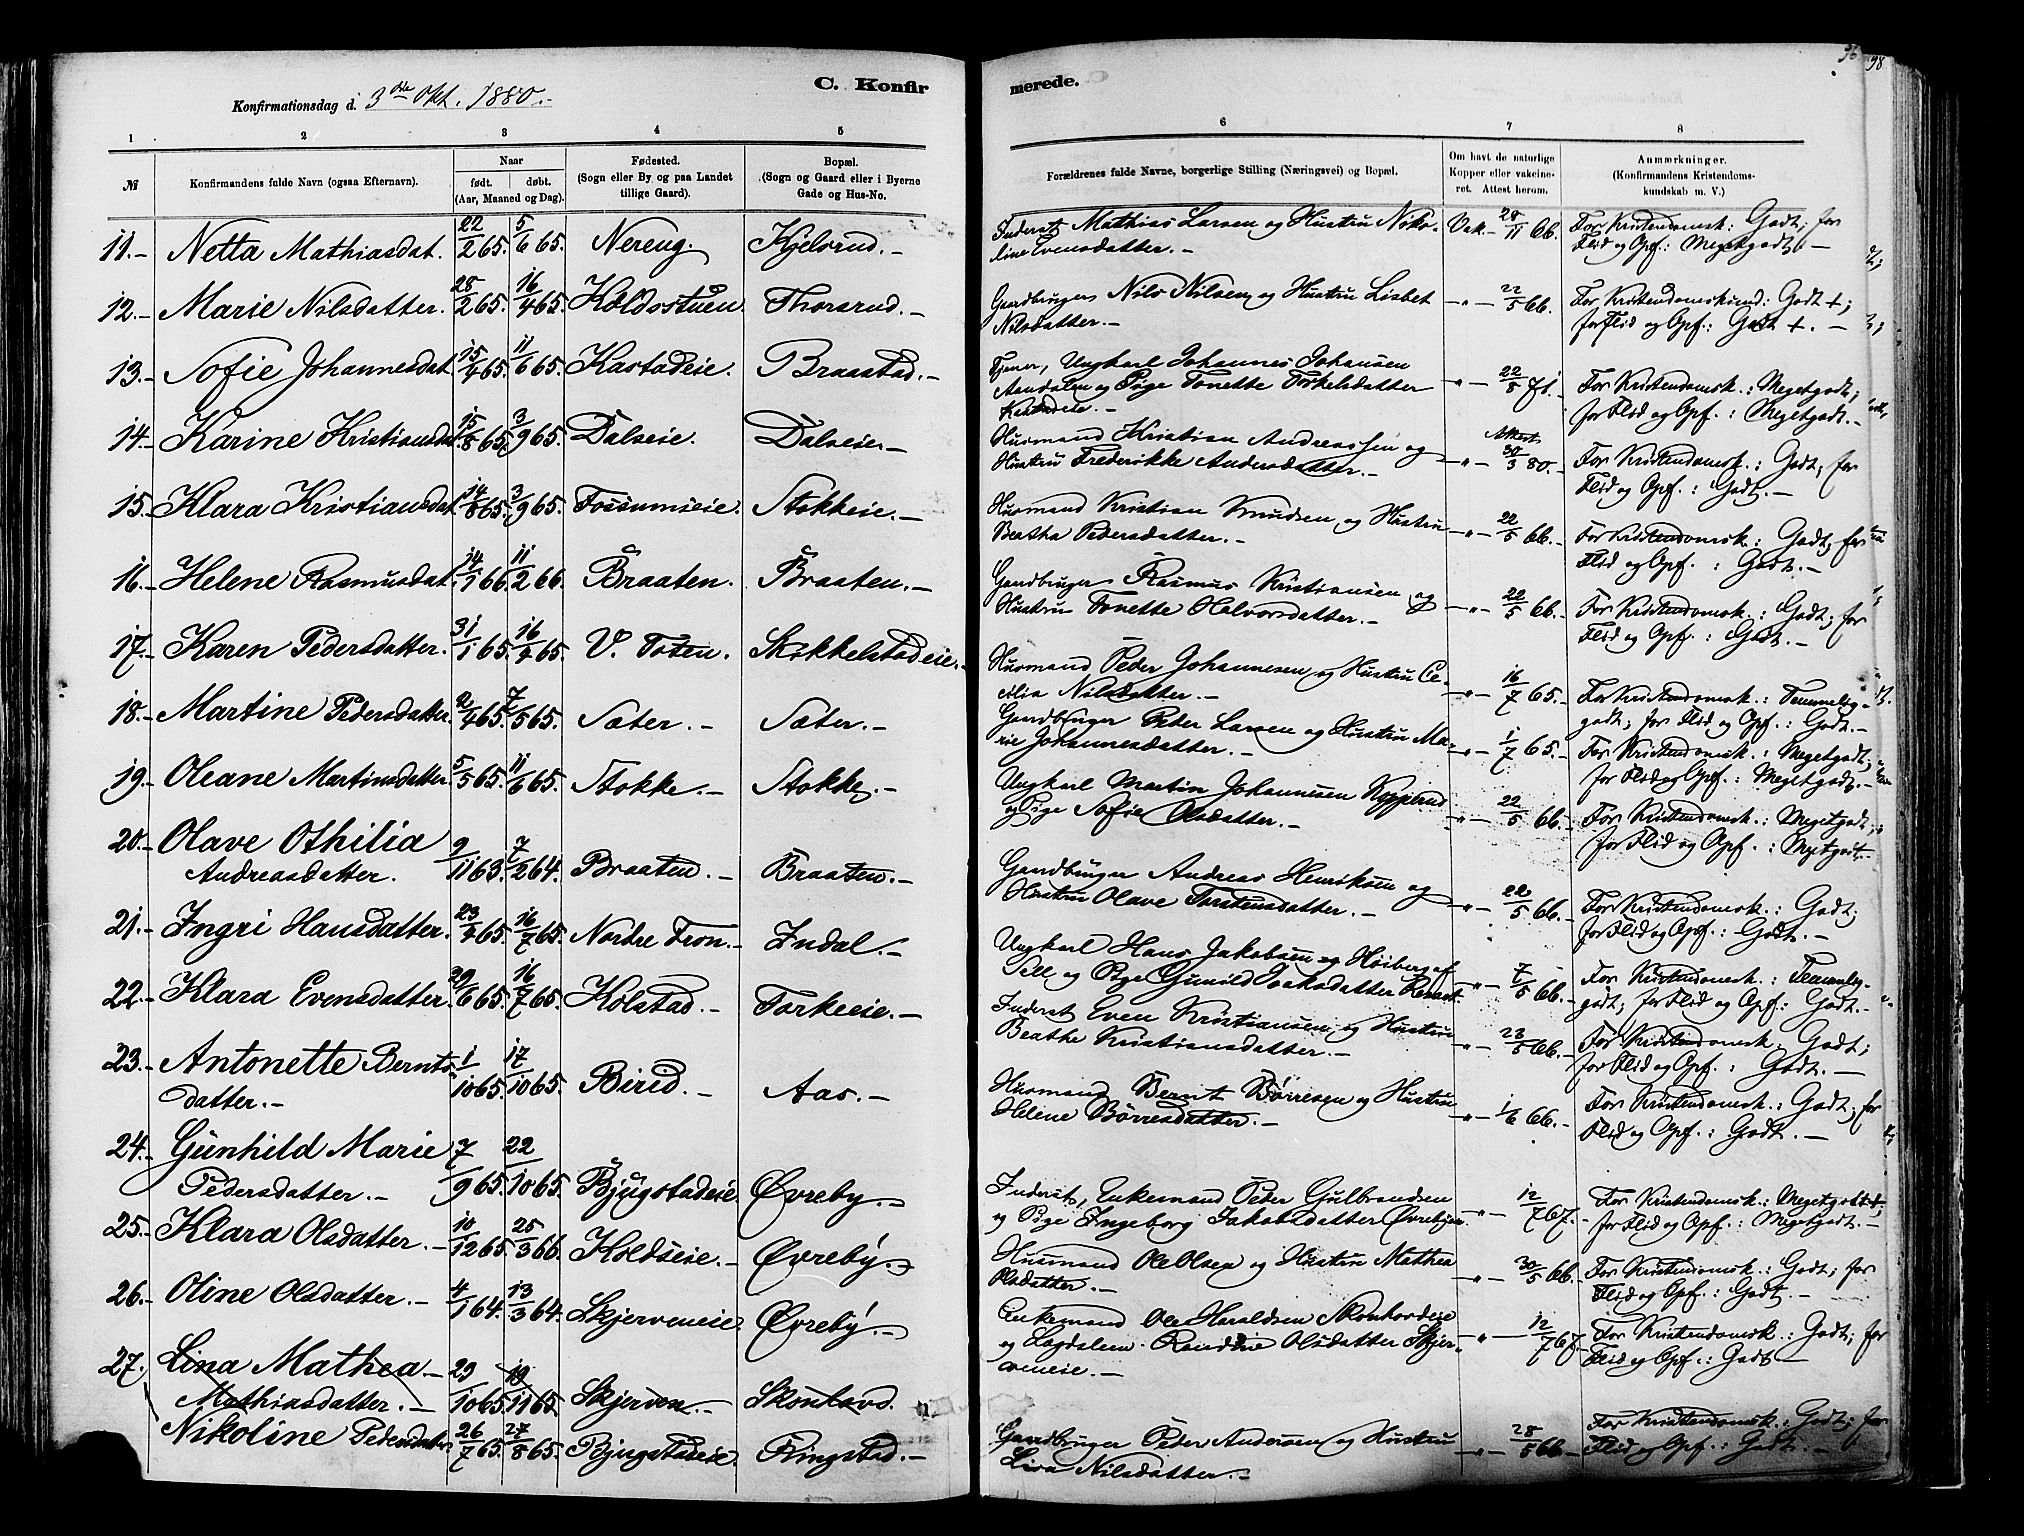 C. Konfir
merede.
98
Konfirmationsdag d. 3die Okt. 1880.-
1 2 3 4 5
6 7 8
№
Konfirmandens fulde Navn (ogsaa Efternavn).
Naar
født. døbt.
(Aar, Maaned og Dag).
Fødested.
(Sogn eller By og paa Landet
tillige Gaard).
Bopæl.
(Sogn og Gaard eller i Byerne
Gade og Hus-No.
Forældrenes fulde Navne, borgerlige Stilling (Næringsvei) og Bopæl.
Om havt de naturlige
Kopper eller vakcine-
ret. Attest herom.
Anmærkninger.
(Konfirmandens Kristendoms-
kundskab m. V.)
11.- Netta Mathiasdat. 22/2 65. 5/6 65. Nereng. Kjelsrud.-
Inderst Mathias Larsen og Hustru Niko-
line Evensdatter.- Vak.- 28/11 66. For Kristendomsk: Godt; for
Flid og Opf: Megetgodt.-
12.- Marie Nilsdatter. 28/2 65. 16/4 65. Koldsstuen. Thorsrud.-
Gaardbruger Nils Nilsen og Hustru Lisbet
Nilsdatter.- -"- 22/5 66. For Kristendomskund: Godt +;
for Flid og Opf.: Godt +.-
13.- Sofie Johannesdat. 15/4 65. 11/6 65. Kastadeie. Braastad.-
Tjener, Ungkarl Johannes Johansen
og Pige Tonette Torkelsdatter
Kastadeie.- "- 22/8 71. For Kristendomsk.: Megetgodt;
for Flid og Opf.: Megetgodt.-
14.- Karine Kristiansdat. 15/8 65. 3/9 65. Dalseie. Dalseie.-
Husmand Kristian Andreassen og
Hustru Frederikke Andersdatter.- Attest
-"- 30/3 80.- For Kristendomsk.: Godt; for
Flid og Opf.: Godt.-
15.- Klara Kristiansdat. 14/8 65. 3/9 65. Fossumseie. Stokkeie.-
Husmand Kristian Knudsen og Hustru
Beatha Pedersdatter.- -"- 22/5 66.- For Kristendomsk: Godt; for
Flid og Opf.: Godt.-
16.- Helene Rasmusdat. 14/1 66. 11/2 66. Braaten. Braaten.-
Gardbruger Rasmus Kristiansen og
Hustru Tonette Halvorsdatter.- -"- 22/5 66.- For Kristendomsk.: Godt; for
Flid og Opf.: Godt.-
17.- Karen Pedersdatter. 31/1 65. 16/4 65. V. Toten. Skikkelstadeie.-
Husmand Peder Johannesen og Hustru Ce-
cilia Nilsdatter.- -"- 16/7 65.- For Kristendomsk.: Temmelig-
godt; for Flid og Opf.: Godt.-
18.- Martine Pedersdatter. 2/4 65. 7/5 65. Sæter.- Sæter.-
Gardbruger Peter Larsen og Hustru Ma-
rie Johannesdatter.- -"- 1/7 65.- For Kristendomsk.: Megetgodt;
for Flid og Opf.: Megetgodt.-
19.- Oleane Martinsdatter. 5/5 65. 11/6 65. Stokke.- Stokke.-
Ungkarl Martin Johannesen Kopperud
og Pige Sofie Olsdatter.- -"- 22/5 66.- For Kristendomsk.: Megetgodt;
for Flid og Opf.: Megetgodt.-
20.- Olave Othilia
Andreasdatter. 9/11 63. 7/2 64. Braaten.- Braaten.-
Gardbruger Andreas Henriksen og
Hustru Olave Torstensdatter.- -"- 22/5 66.- For Kristendomsk.: Godt;
for Flid og Opf.: Godt.-
21.- Ingri Hansdatter. 23/4 65. 16/7 65. Nordre Fron.- Indal.-
Ungkarl Hans Jakobsen Høiberg af
og Pige Gunild -"- 7/5 66.- For Kristendomsk.: Temmelig-
godt; for Flid og Opf.: Godt.-
22.- Klara Evensdatter 29/6 65. 16/7 65. Kolstad.- Torkeeie.-
Inderst Even Kristiansen og Hustru
Beathe Kristiansdatter.- -"- 23/5 66.- For Kristendomsk.: Godt;
for Flid og Opf.: Godt.-
23.- Antonette Bernts-
datter.- 1/10 65. 17/10 65. Bired.- Aas.-
Husmand Bernt Børresen og Hustru
Helene Børresdatter.- -"- 1/6 66.- For Kristendomsk.: Godt; for
Flid og Opf.: Godt.-
24.- Gunhild Marie
Pedersdatter.- 7/9 65. 22/10 65. Bjugstadeie. Øvreby.-
Inderst, Enkemand Peder Gulbrandsen
og Pige Ingeborg Jakobsdatter Øvrebyen. -"- 12/7 67.- For Kristendomsk.: Megetgodt+;
for Flid og Opf.: Megetgodt.-
25.- Klara Olsdatter.- 10/12 65. 25/3 66. Koldseie.- Øvreby.-
Husmand Ole Olsen og Hustru Mathea
Olsdatter.- -"- 30/5 66.- For Kristendomsk.: Godt; for
Flid og Opf.: Godt.-
26.- Oline Olsdatter.- 4/1 64. 13/3 64. Skjerveneie. Øvreby.-
Enkemand Ole Haraldsen
og Olsdatter Skjer-
veneie.- -"- 12/7 67.- For Kristendomsk.: Godt; for
Flid og Opf.: Godt.-
27. Lina Mathea-
Mathiasdatter.- 29/10 65. 19/11 65. Skjerven.- Skonlavs.
Nikoline Pedersdatter 26/7 65. 27/8 65. Bjugstadeie. Ringstad.-
Gardbruger Peder Andersen og Hustru
Lisa Nilsdatter.- -"- 28/5 66.- For Kristendomsk.: Godt; for
Flid og Opf.: Godt.-